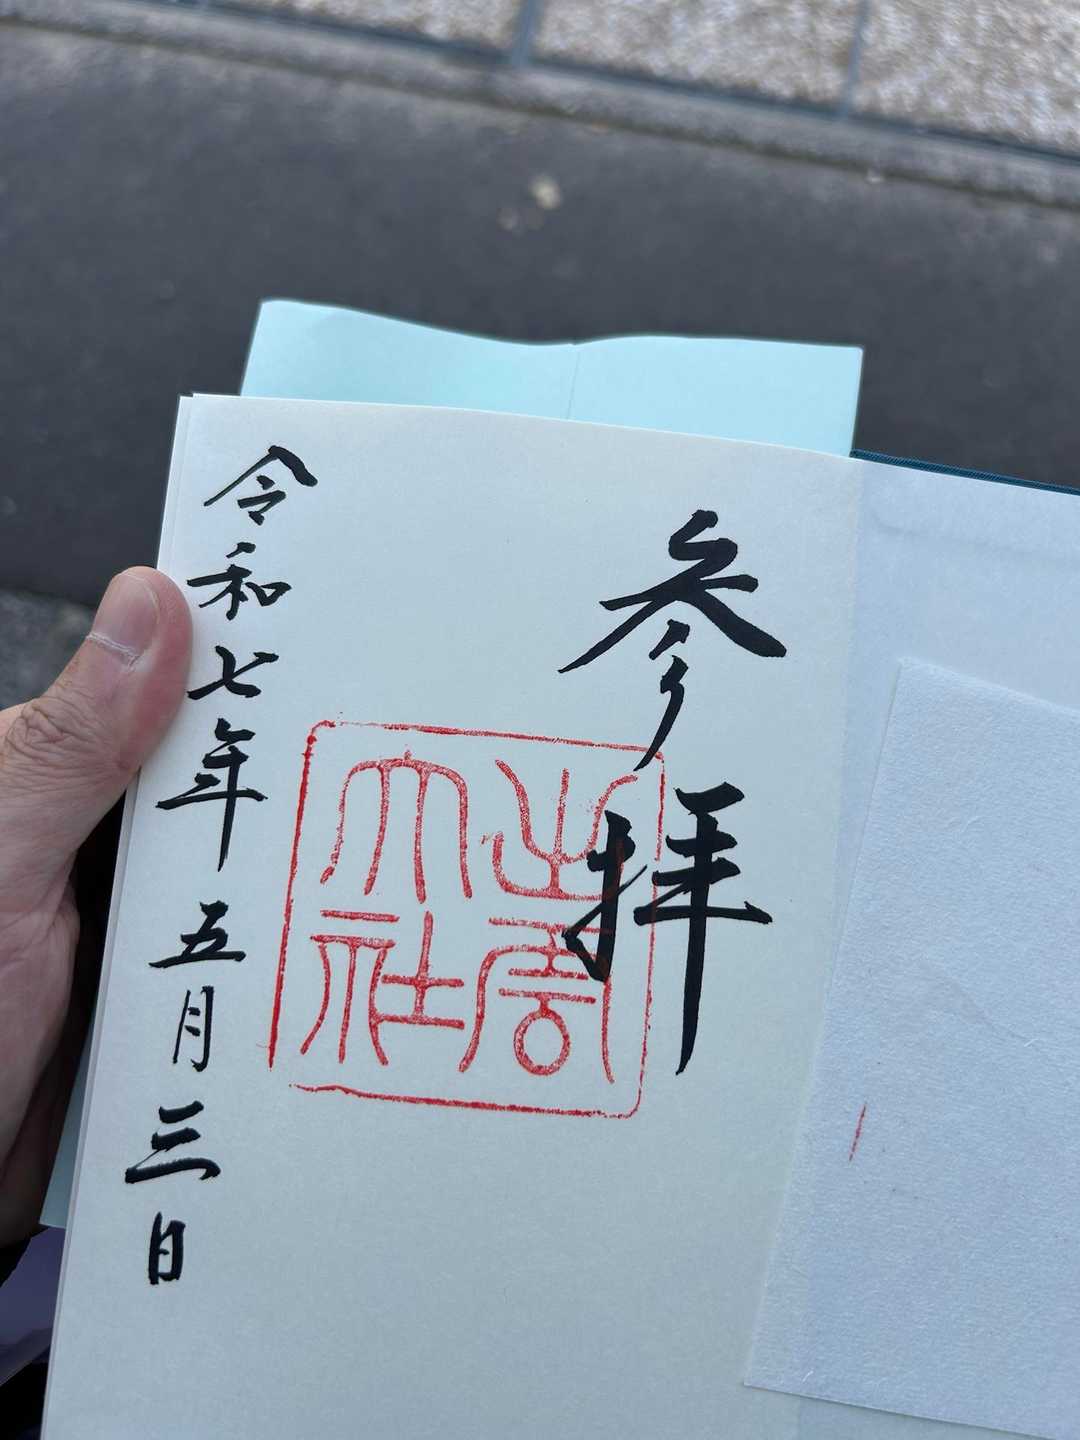 参拝
出雲
大社
令和七年五月三日